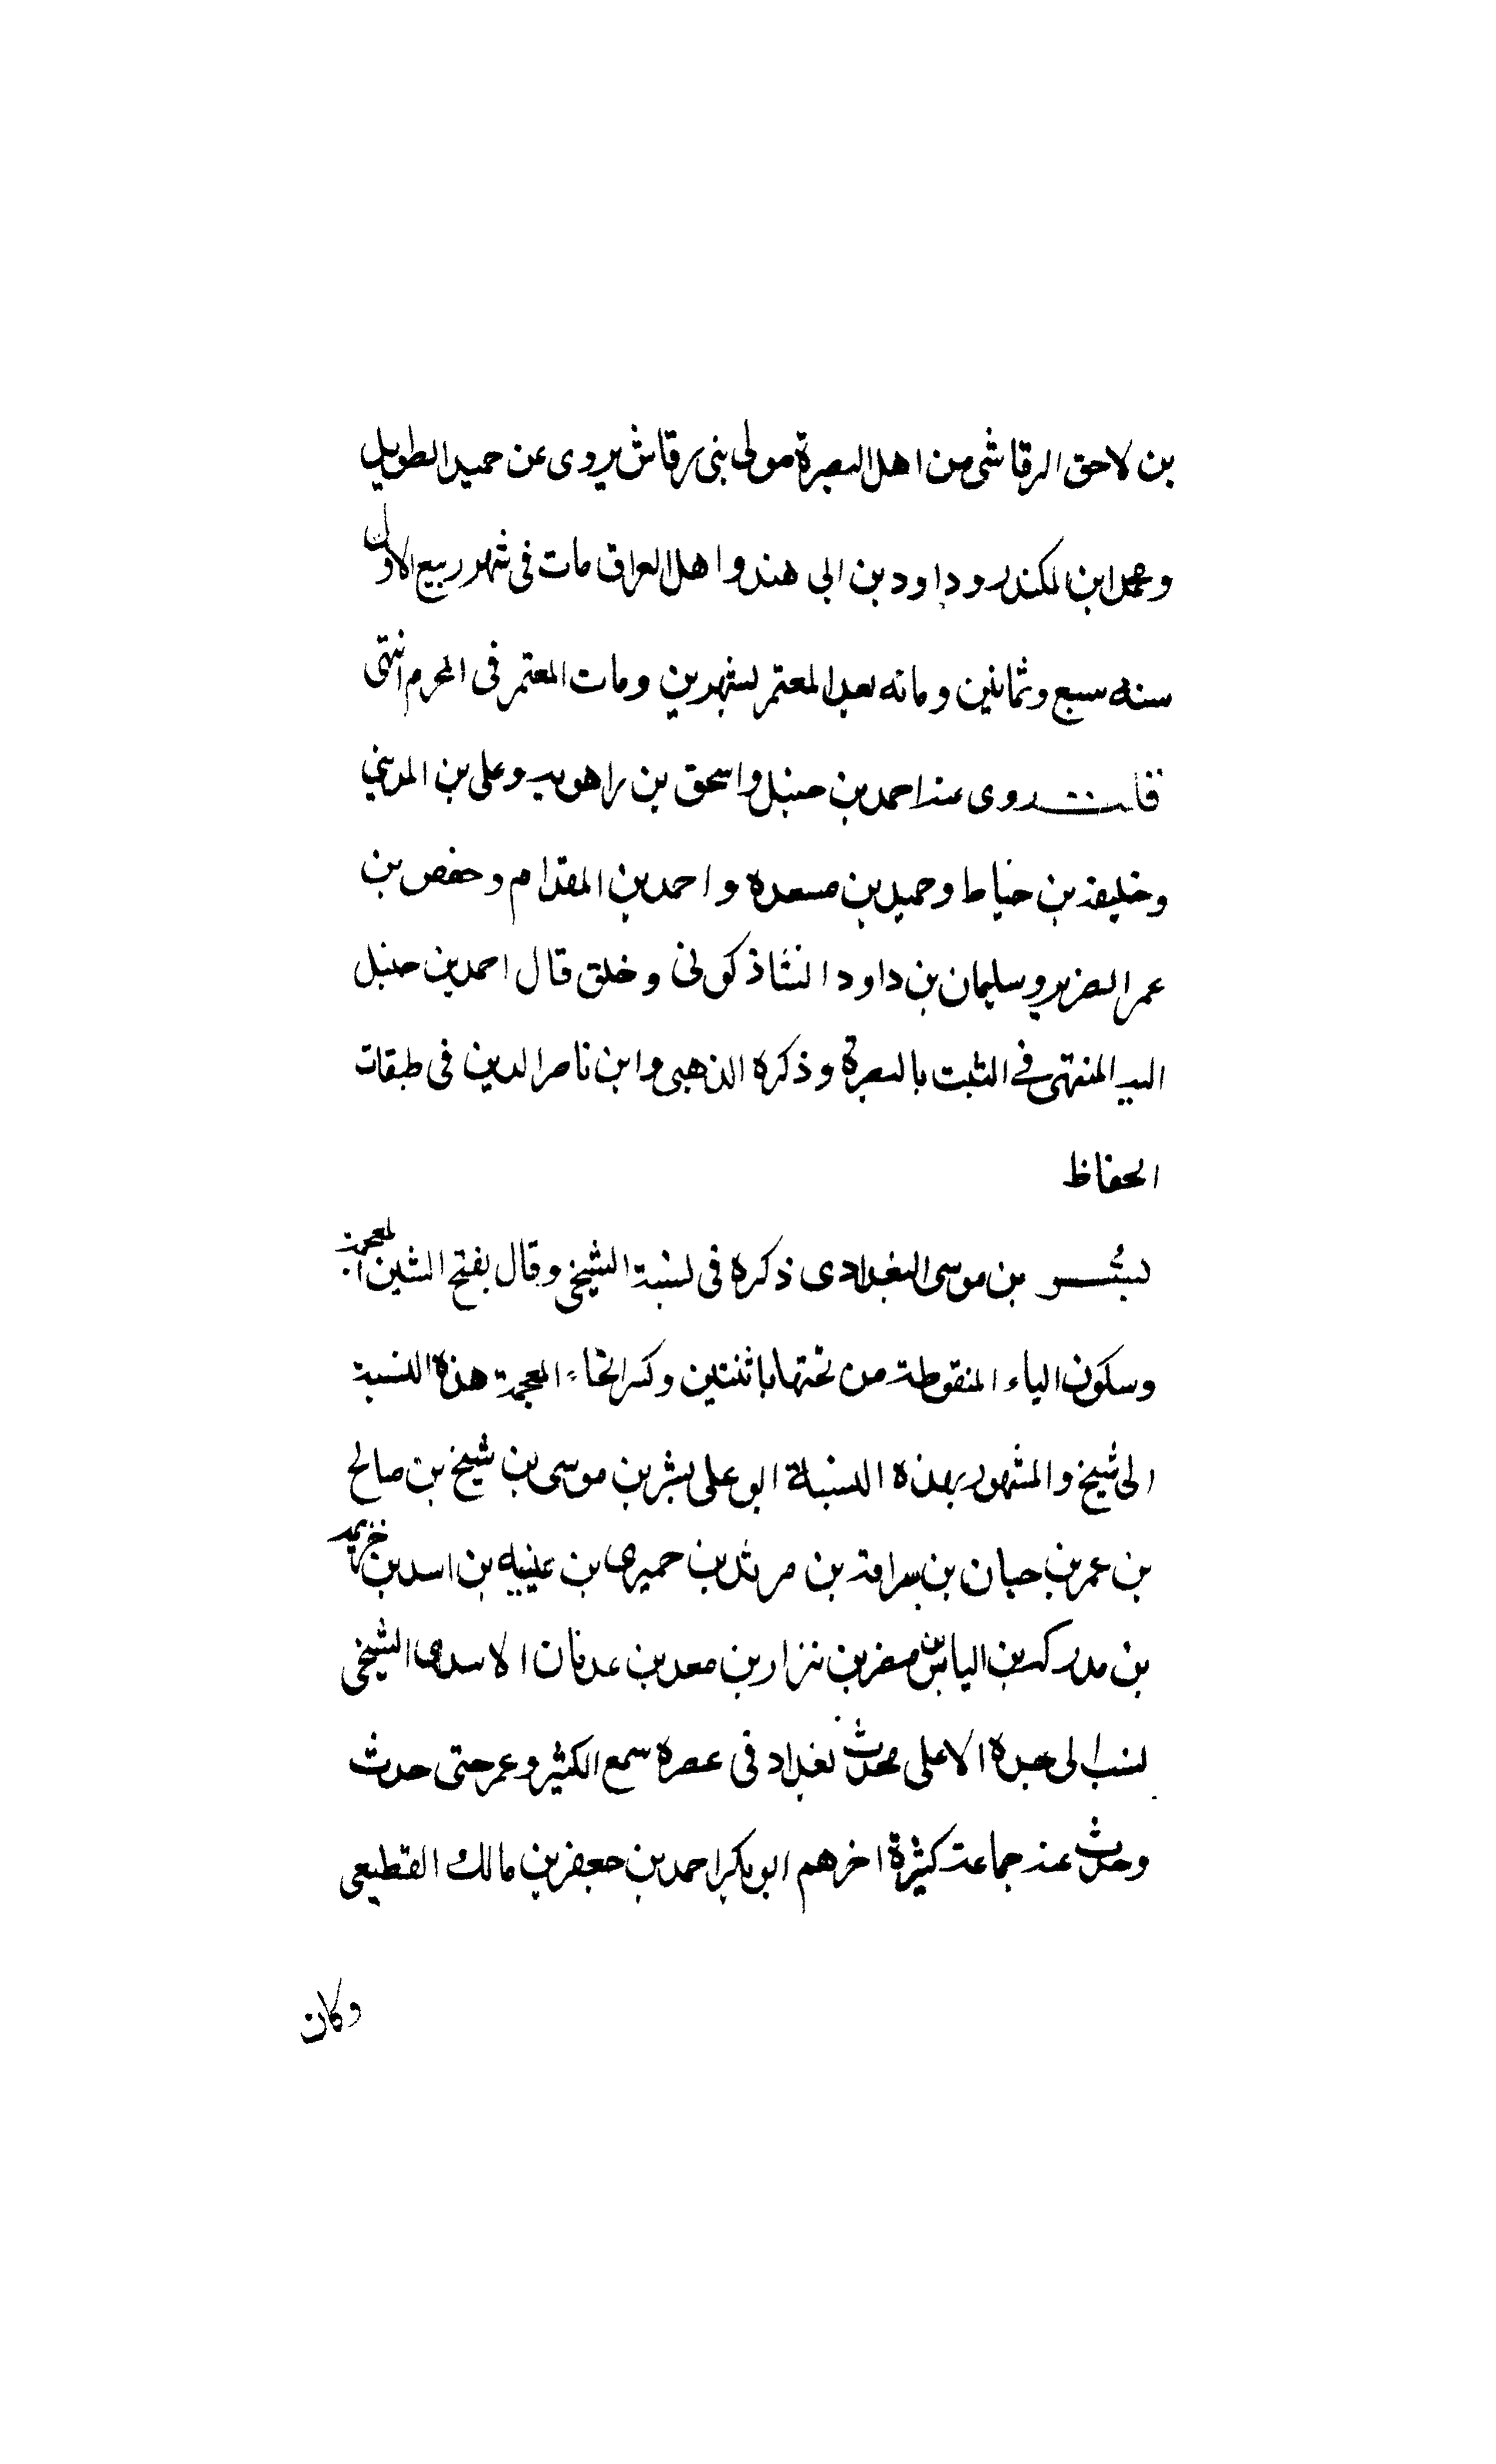 بن لاحق الرقاشى من اهل البصرة مولى بنى رقاش يروى عن حميد الطويل
ومحمد ابن المكندر وداود بن ابى هند واهل العراق مات فى شهر ربيع الاول
سنه سبع وثمانين ومائه بعد المعتمر بشهرين ومات المعتمر فى المحرم انتهى
قلت روى عنه احمد بن حنبل واسحق بن راهويه وعلى بن المدينى
وخليفة بن خياط وحميد بن مسعده واحمد بن المقدام وحفص بن
عمر الضرير وسليمان بن داود الشاذكونى وخلق قال احمد بن حنبل
اليه المنتهى فى التثبت بالبصرة وذكره الذهبى وابن ناصر الدين فى طبقات
الحفاظ
بشر بن موسى البغدادى ذكره فى نسبة الشيخى وقال بفتح الشين المعجمة
وسكون الياء المنقوطة من تحتها باثنتين وكسر الخاء المعجمة هذه النسبة
الى شيخ والمشهور بهذه النسبة ابو على بشر بن موسى بن شيخ بن صالح
بن عمر بن حبان بن سراقة بن مرثد بن حميرى بن عيينه بن اسد بن خزيمه
بن مدركة بن الياس بن مضر بن نزار بن معد بن عدنان الاسدى الشيخى
نسب الى جده الاعلى محدث بغداد فى عصره سمع الكثير وعمر حتى حدث
وحدث عنه جماعة كثيرة اخرهم ابو بكر احمد بن جعفر بن مالك القطيعى
وكان